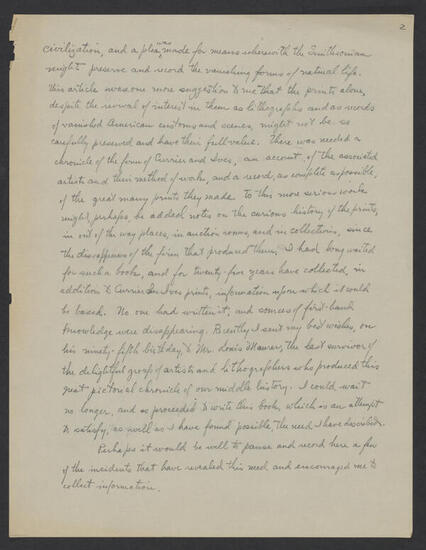 2
civilization, and a plea was made for means wherewith the Smithsonian
might preserve and record the vanishing forms of natural life.
This article was one more suggestion to me that the prints alone,
despite the revival of interest in them as lithographs and as records
of vanished American customs and scenes, might not be so
carefully preserved and have their full value. There was needed a
chronicle of the firm of Currier and Ives, an account of the associated
artists and their method of work, and a record, as complete as possible,
of the great many prints they made. To this more serious work
might perhaps be added notes on the curious history of the prints,
in out of the way places, in auction rooms, and in collections, since
the disappearance of the firm that produced them. I had long waited
for such a book, and for twenty-five years have collected, in
addition to Currier & Ives prints, information upon which it could
be based. No one had written it, and sources of first-hand
knowledge were disappearing. Recently I sent my best wishes, on
his ninety-fifth birthday, to Mr. Louis Maurer, the last survivor of
the delightful group of artists and lithographers who produced this
great pictorial chronicle of our middle history. I could wait
no longer, and so proceeded to write this book, which is an attempt
to satisfy, as well as I have found possible, the need I have described.
Perhaps it would be well to pause and record here a few
of the incidents that have revealed this need and encouraged me to
collect information.